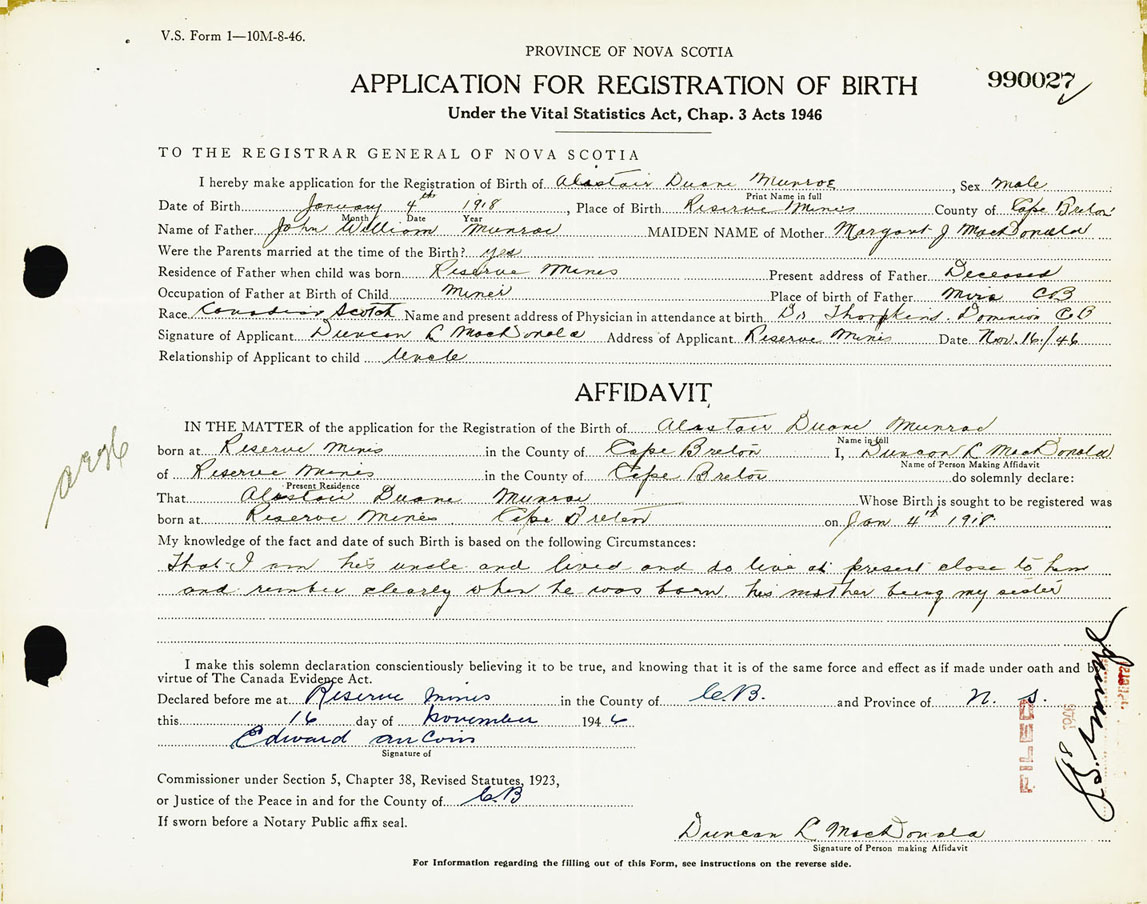 V.S. Form 1—10M-8-46.
PROVINCE OF NOVA SCOTIA
APPLICATION FOR REGISTRATION OF BIRTH
990027
Under the Vital Statistics Act, Chap. 3 Acts 1946
TO THE REGISTRAR GENERAL OF NOVA SCOTIA
I hereby make application for the Registration of Birth of Alastair Duane Munroe, Sex male
Print Name in full
Date of Birth January 4th 1918, Place of Birth Reserve Mines County of Cape Breton
Month Date Year
Name of Father John William Munroe MAIDEN NAME of Mother Margaret J MacDonald
Were the Parents married at the time of the Birth? yes
Residence of Father when child was born Reserve Mines Present address of Father Deceased
Occupation of Father at Birth of Child Miner Place of birth of Father Mira CB
Race Canadian Scotch Name and present address of Physician in attendance at birth Dr Dominion CB
Signature of Applicant Duncan L MacDonald Address of Applicant Reserve Mines Date Nov. 16/46
Relationship of Applicant to child Uncle
AFFIDAVIT
IN THE MATTER of the application for the Registration of the Birth of Alastair Duane Munroe
Name in full
born at Reserve Mines in the County of Cape Breton I, Duncan L MacDonald
Name of Person Making Affidavit
of Reserve Mines in the County of Cape Breton do solemnly declare:
Present Residence
That Alastair Duane Munroe Whose Birth is sought to be registered was
born at Reserve Mines Cape Breton on Jan 4th 1918.
My knowledge of the fact and date of such Birth is based on the following Circumstances:
That I am his uncle and lived and do live at present close to him
and rember clearly when he was born his mother being my sister
I make this solemn declaration conscientiously believing it to be true, and knowing that it is of the same force and effect as if made under oath and by
virtue of The Canada Evidence Act.
Declared before me at Reserve Mines in the County of C.B. and Province of N. S.
this 16 day of November 1946
Edward
Signature of
Commissioner under Section 5, Chapter 38, Revised Statutes, 1923,
or Justice of the Peace in and for the County of C.B
If sworn before a Notary Public affix seal.
Duncan L MacDonald
Signature of Person making Affidavit
For Information regarding the filling out of this Form, see instructions on the reverse side.
FILED
1946